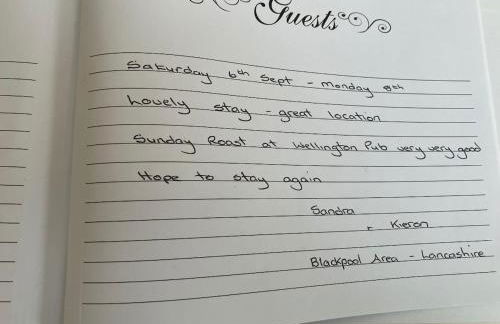 Guests
Saturday 6th Sept - Monday 8th
Lovely stay - great location
Sunday Roast at Wellington Pub very very good
Hope to stay again
Sandra
+ Kieron
Blackpool Area - Lancashire